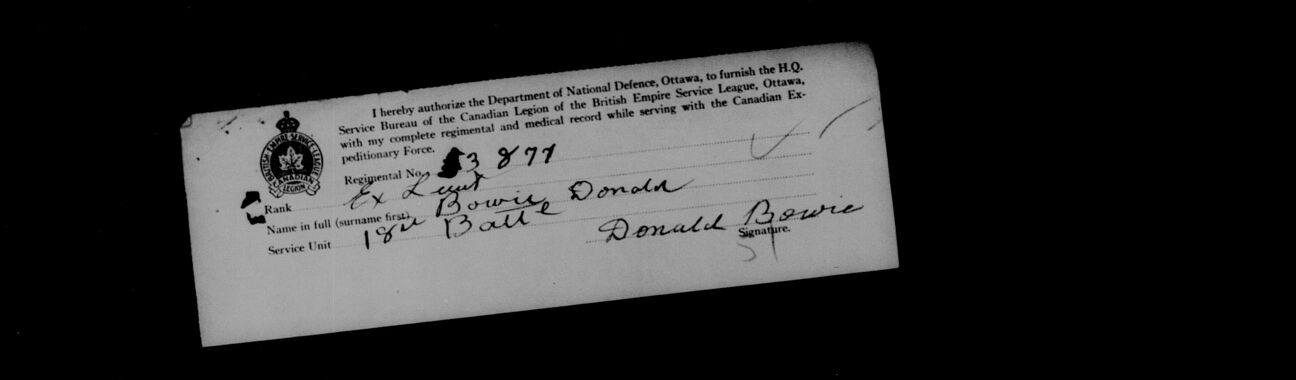 I hereby authorize the Department of National Defence, Ottawa, to furnish the H.Q.
Service Bureau of the Canadian Legion of the British Empire Service League, Ottawa,
with my complete regimental and medical record while serving with the Canadian Ex-
peditionary Force.
BRITISH EMPIRE SERVICE LEAGUE
CANADIAN
LEGION
Regimental No. 3877
Rank Ex Lieut
Name in full (surname first) Bowie Donald
Service Unit 18th Batt
Donald Bowie
Signature.